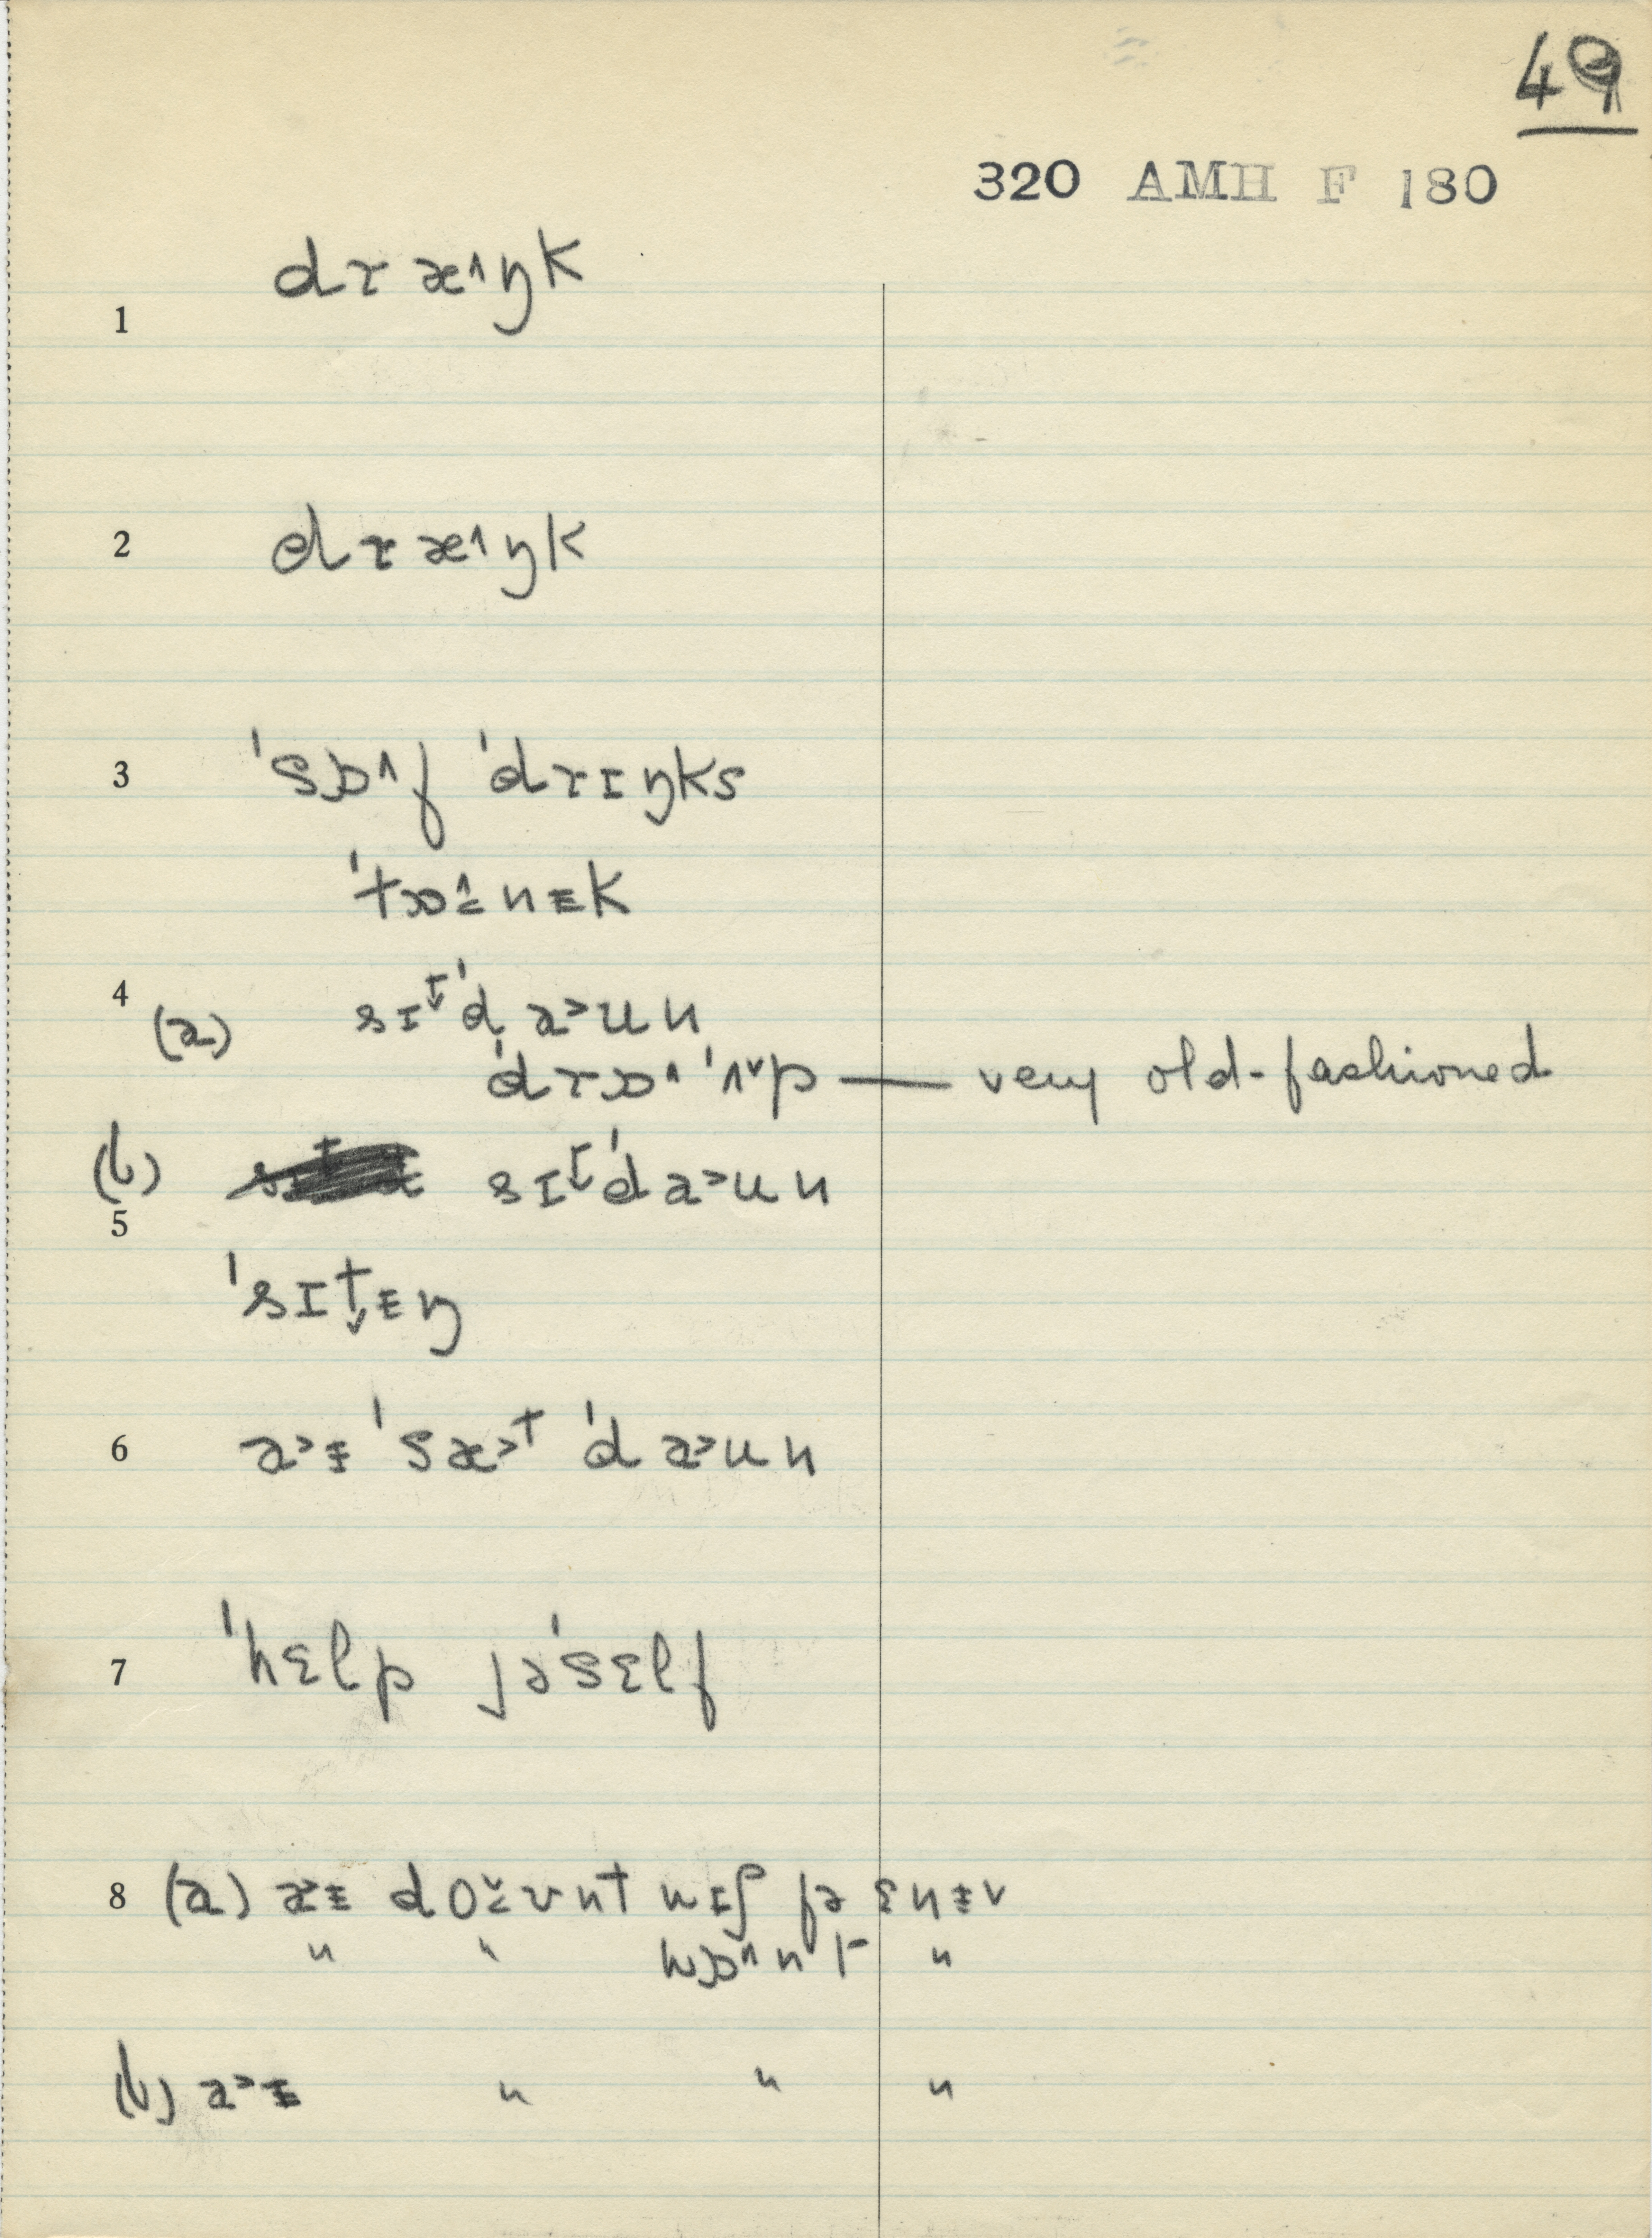 49
320 AMH F 180
1 dræ˄ŋk
2 dræ˄ŋk
3 ˈsɒ˄f ˈdrɪŋks
ˈtɒ˄nɪk
4 (a) sɪtˈda˃un
ˈdrɒ˄ ˈʌ˅p — very old-fashioned
(b) sɪtˈda˃un
5 ˈsɪtɪŋ
6 a˃ɪ ˈsæ˃t ˈda˃un
7 ˈhɛlp jəˈsɛlf
8 (a) a˃ɪ doʊnt wɪʃ fə ɛnɪ
" " wɒ˄nt "
(b) a˃ɪ " " "